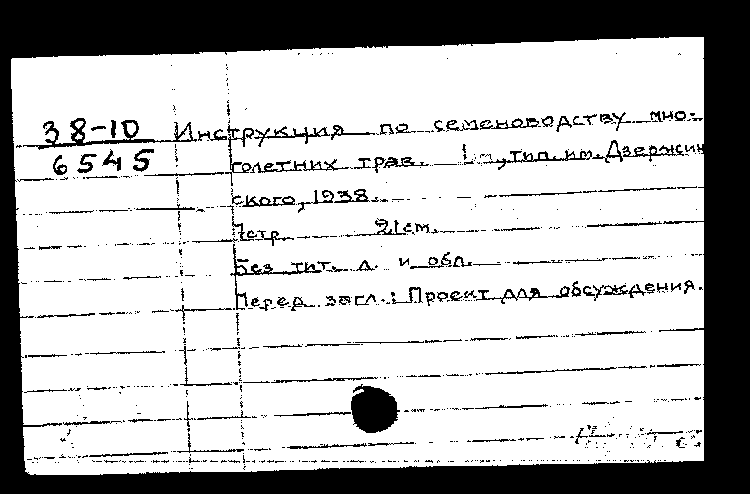 38-10
6545
Инструкция по семеноводству мно-
голетних трав. тип. им. Дзержин
ского, 1938.
7стр. 21см.
Без тит. л. и обл.
Перед загл.: Проект для обсуждения.